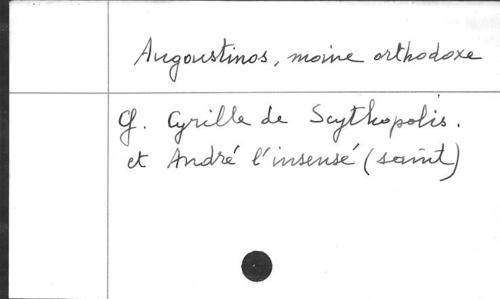 Augoustinos, moine orthodoxe
Cf. Cyrille de Scythopolis.
et André l'insensé (saint)